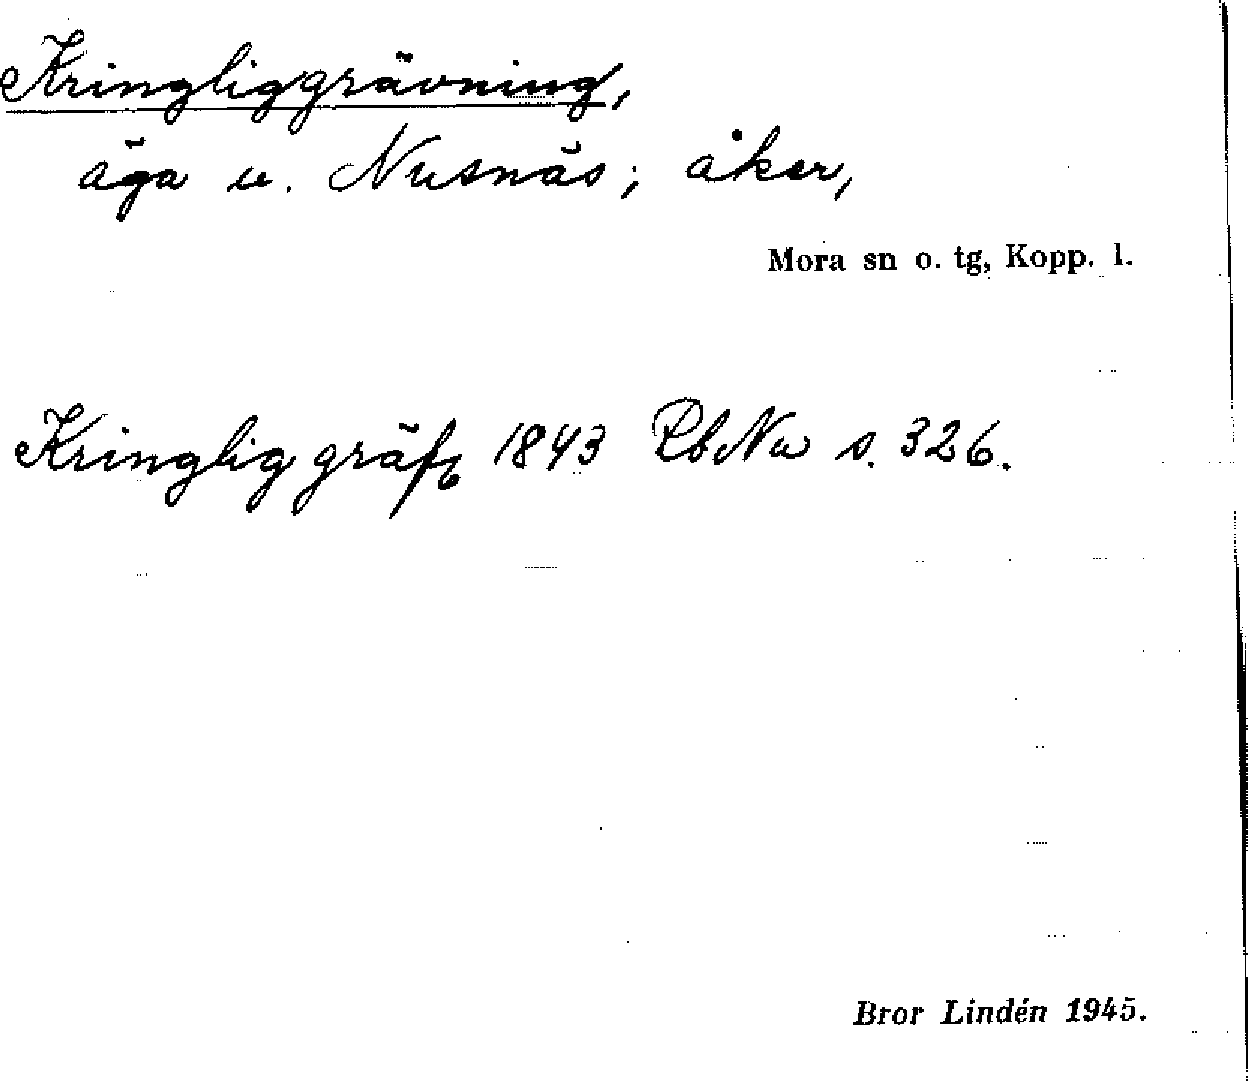 Kringliggrävning,
äga u. Nusnäs; åker,
Mora sn o. tg, Kopp. l.
Kringlig gräfg 1843 RbNu s. 326.
Bror Lindén 1945.